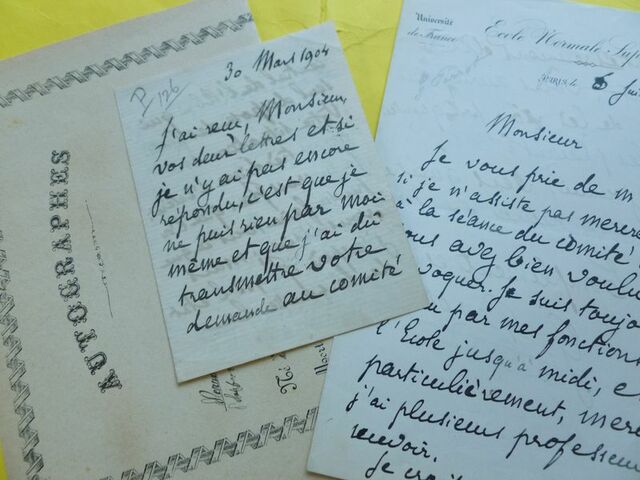 AUTOGRAPHES
P/126
30 Mars 1904
J'ai reçu, Monsieur,
vos deux lettres et si
je n'y ai pas encore
répondu, c'est que je
ne puis rien par moi
même et que j'ai dû
transmettre votre
demande au comité
Université
de France
Ecole Normale Sup
PARIS, le 6 Jui
Monsieur
Je vous prie de m
si je n'assiste pas mercre
à la séance du comité
vous avez bien voulu
voquer. Je suis toujo
par mes fonction
l'Ecole jusqu'à midi, e
particulièrement, merc
j'ai plusieurs professeu
recevoir.
Je